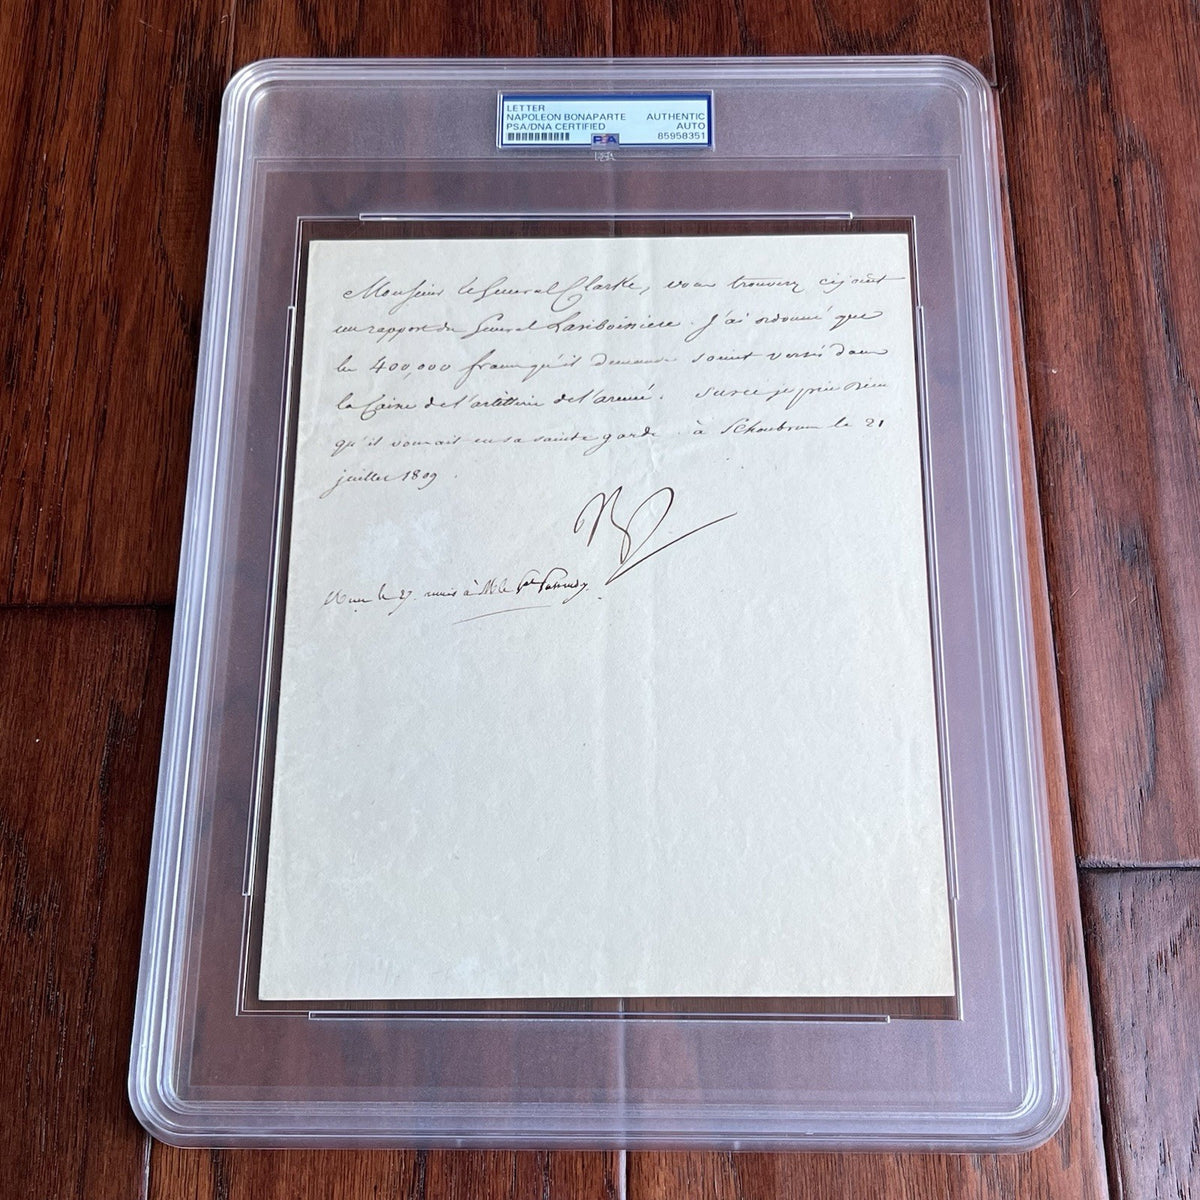 LETTER
NAPOLEON BONAPARTE AUTHENTIC
PSA/DNA CERTIFIED AUTO
85958351
PSA
Monsieur le General Clarke, vous trouverez cijoint
un rapport du General Lariboissiere. J'ai ordonné que
les 400,000 francs qu'il demande soient versés dans
la Caisse de l'artillerie de l'armée. Sur ce je prie Dieu
qu'il vous ait en sa sainte garde. à Schonbrun le 21
juillet 1809.
Np
le 27. remis à M. le